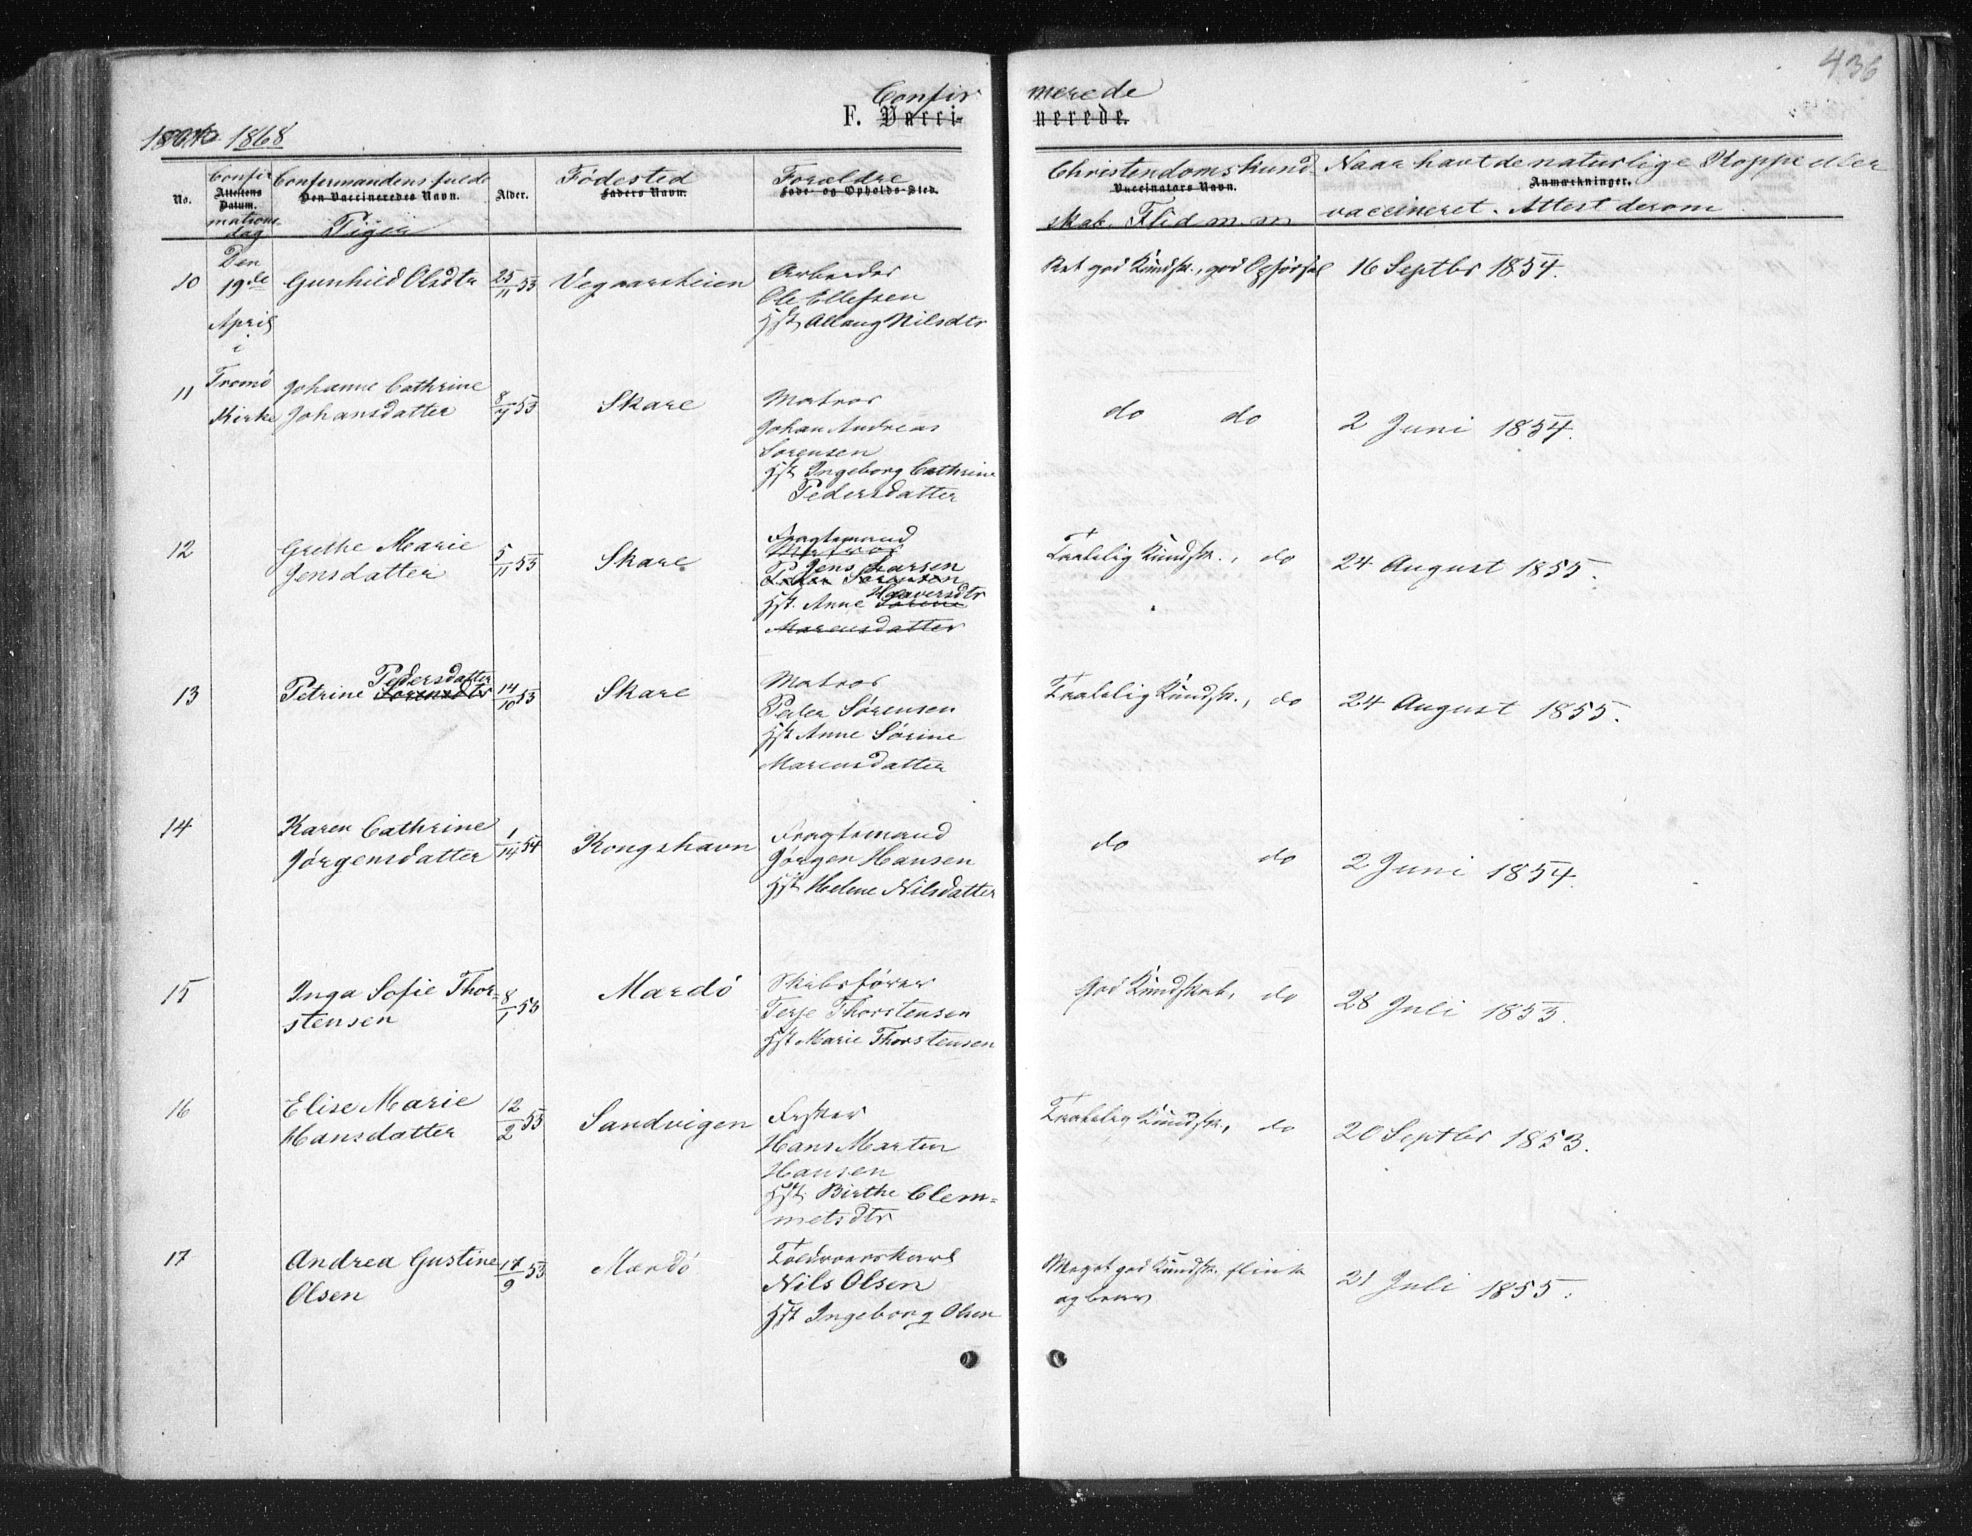 436
Confirmerede
F. Vaccinerede.
1868
No.
Confirmationsdag
Attestens Datum.
Confirmandens fulde
Den Vaccineredes Navn.
Piger
Alder.
Fødested
Faders Navn.
Forældre
Føde- og Opholds-Sted.
Christendomskundskab. Flid m. m
Vaccinators Navn.
Naar havt de naturlige Kopper eller
Anmærkninger.
vaccineret. Attest derom
10
Den
19de
April
i
Tromø
Kirke
Gunhild Olsdtr
25/11 53
Vegaarsheien
Arbeider
Ole Ellefsen
Hst. Allaug Nilsdtr
Ret god Kundsk., god Opførsel
16 Septbr 1854.
11
Johanne Cathrine
Johansdatter
8/7 53
Skare
Matros
Johan Andreas
Sørensen
Hst. Ingeborg Cathrine
Pedersdatter
do do
2 Juni 1854.
12
Grethe Marie
Jensdatter
5/11 53
Skare
Fragtemand
Matros
Jens Larsen
Peder Sørensen
Haaversdtr
Hst. Anne Sørine
Marensdatter
Taalelig Kundsk., do
24 August 1855.
13
Pedersdatter
Petrine Sørensdtr
14/10 53
Skare
Matros
Peder Sørensen
Hst Anne Sørine
Marensdatter
Taalelig Kundsk., do
24 August 1855.
14
Karen Cathrine
Jørgensdatter
1/14 54
Kongshavn
Fragtemand
Jørgen Hansen
Hst Helene Nilsdatter
do do
2 Juni 1854.
15
Inga Sofie Thor-
stensen
8/1 53
Mærdø
Skibsfører
Terje Thorstensen
Hst Marie Thorstensen
God Kundskab, do
28 Juli 1853.
16
Elise Marie
Hansdatter
12/2 53
Sandvigen
Fisker
Hans Martin
Hansen
Hst. Birthe Clem-
metsdtr
Taalelig Kundsk., do
20 Septbr 1853.
17
Andrea Gustine
Olsen
17/9 53
Mærdø
Toldroerskarl
Nils Olsen
Hst Ingeborg Olsen
Meget god Kundsk. flink
og brav
21 Juli 1855.